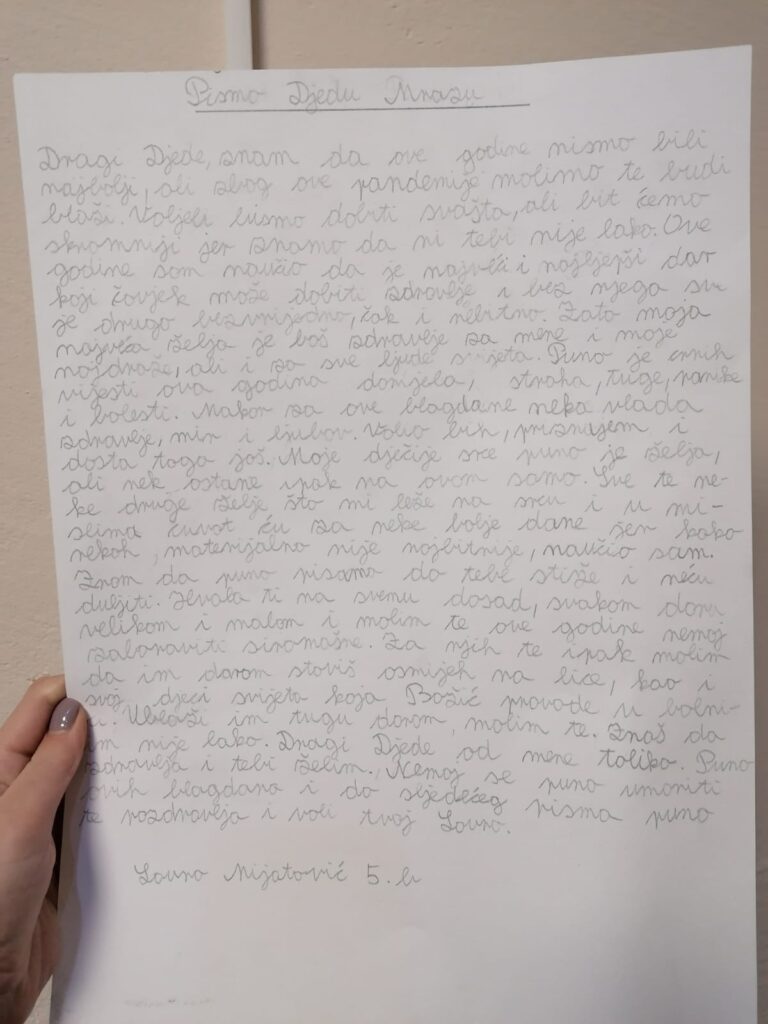 Pismo Djedu Mrazu
Dragi Djede, znam da ove godine nismo bili
najbolji, ali zbog ove pandemije molimo te budi
blaži. Voljeli bismo dobiti svašta, ali bit ćemo
skromniji jer znamo da ni tebi nije lako. Ove
godine sam naučio da je najveći i najljepši dar
koji čovjek može dobiti zdravlje i bez njega sve
je drugo bezvrijedno, čak i nebitno. Zato moja
najveća želja je baš zdravlje za mene i moje
najdraže, ali i za sve ljude svijeta. Puno je crnih
vijesti ova godina donijela, straha, tuge, panike
i bolesti. Makar za ove blagdane neka vlada
zdravlje, mir i ljubav. Volio bih, priznajem i
dosta toga još. Moje dječije srce puno je želja,
ali nek ostane ipak na ovom samo. Sve te ne-
ke druge želje što mi leže na srcu i u mi-
slima čuvat ću za neke bolje dane jer kako
rekoh, materijalno nije najbitnije, naučio sam.
Znam da puno pisama do tebe stiže i neću
duljiti. Hvala ti na svemu dosad, svakom daru
velikom i malom i molim te ove godine nemoj
zaboraviti siromašne. Za njih te ipak molim
da im darom staviš osmijeh na lice, kao i
svoj djeci svijeta koja Božić provode u bolni-
ci. Ublaži im tugu darom, molim te. Znaš da
im nije lako. Dragi Djede od mene toliko. Puno
zdravlja i tebi želim. Nemoj se puno umoriti
ovih blagdana i do sljedećeg pisma puno
te pozdravlja i voli tvoj Lovro.
Lovro Mijatović 5. b